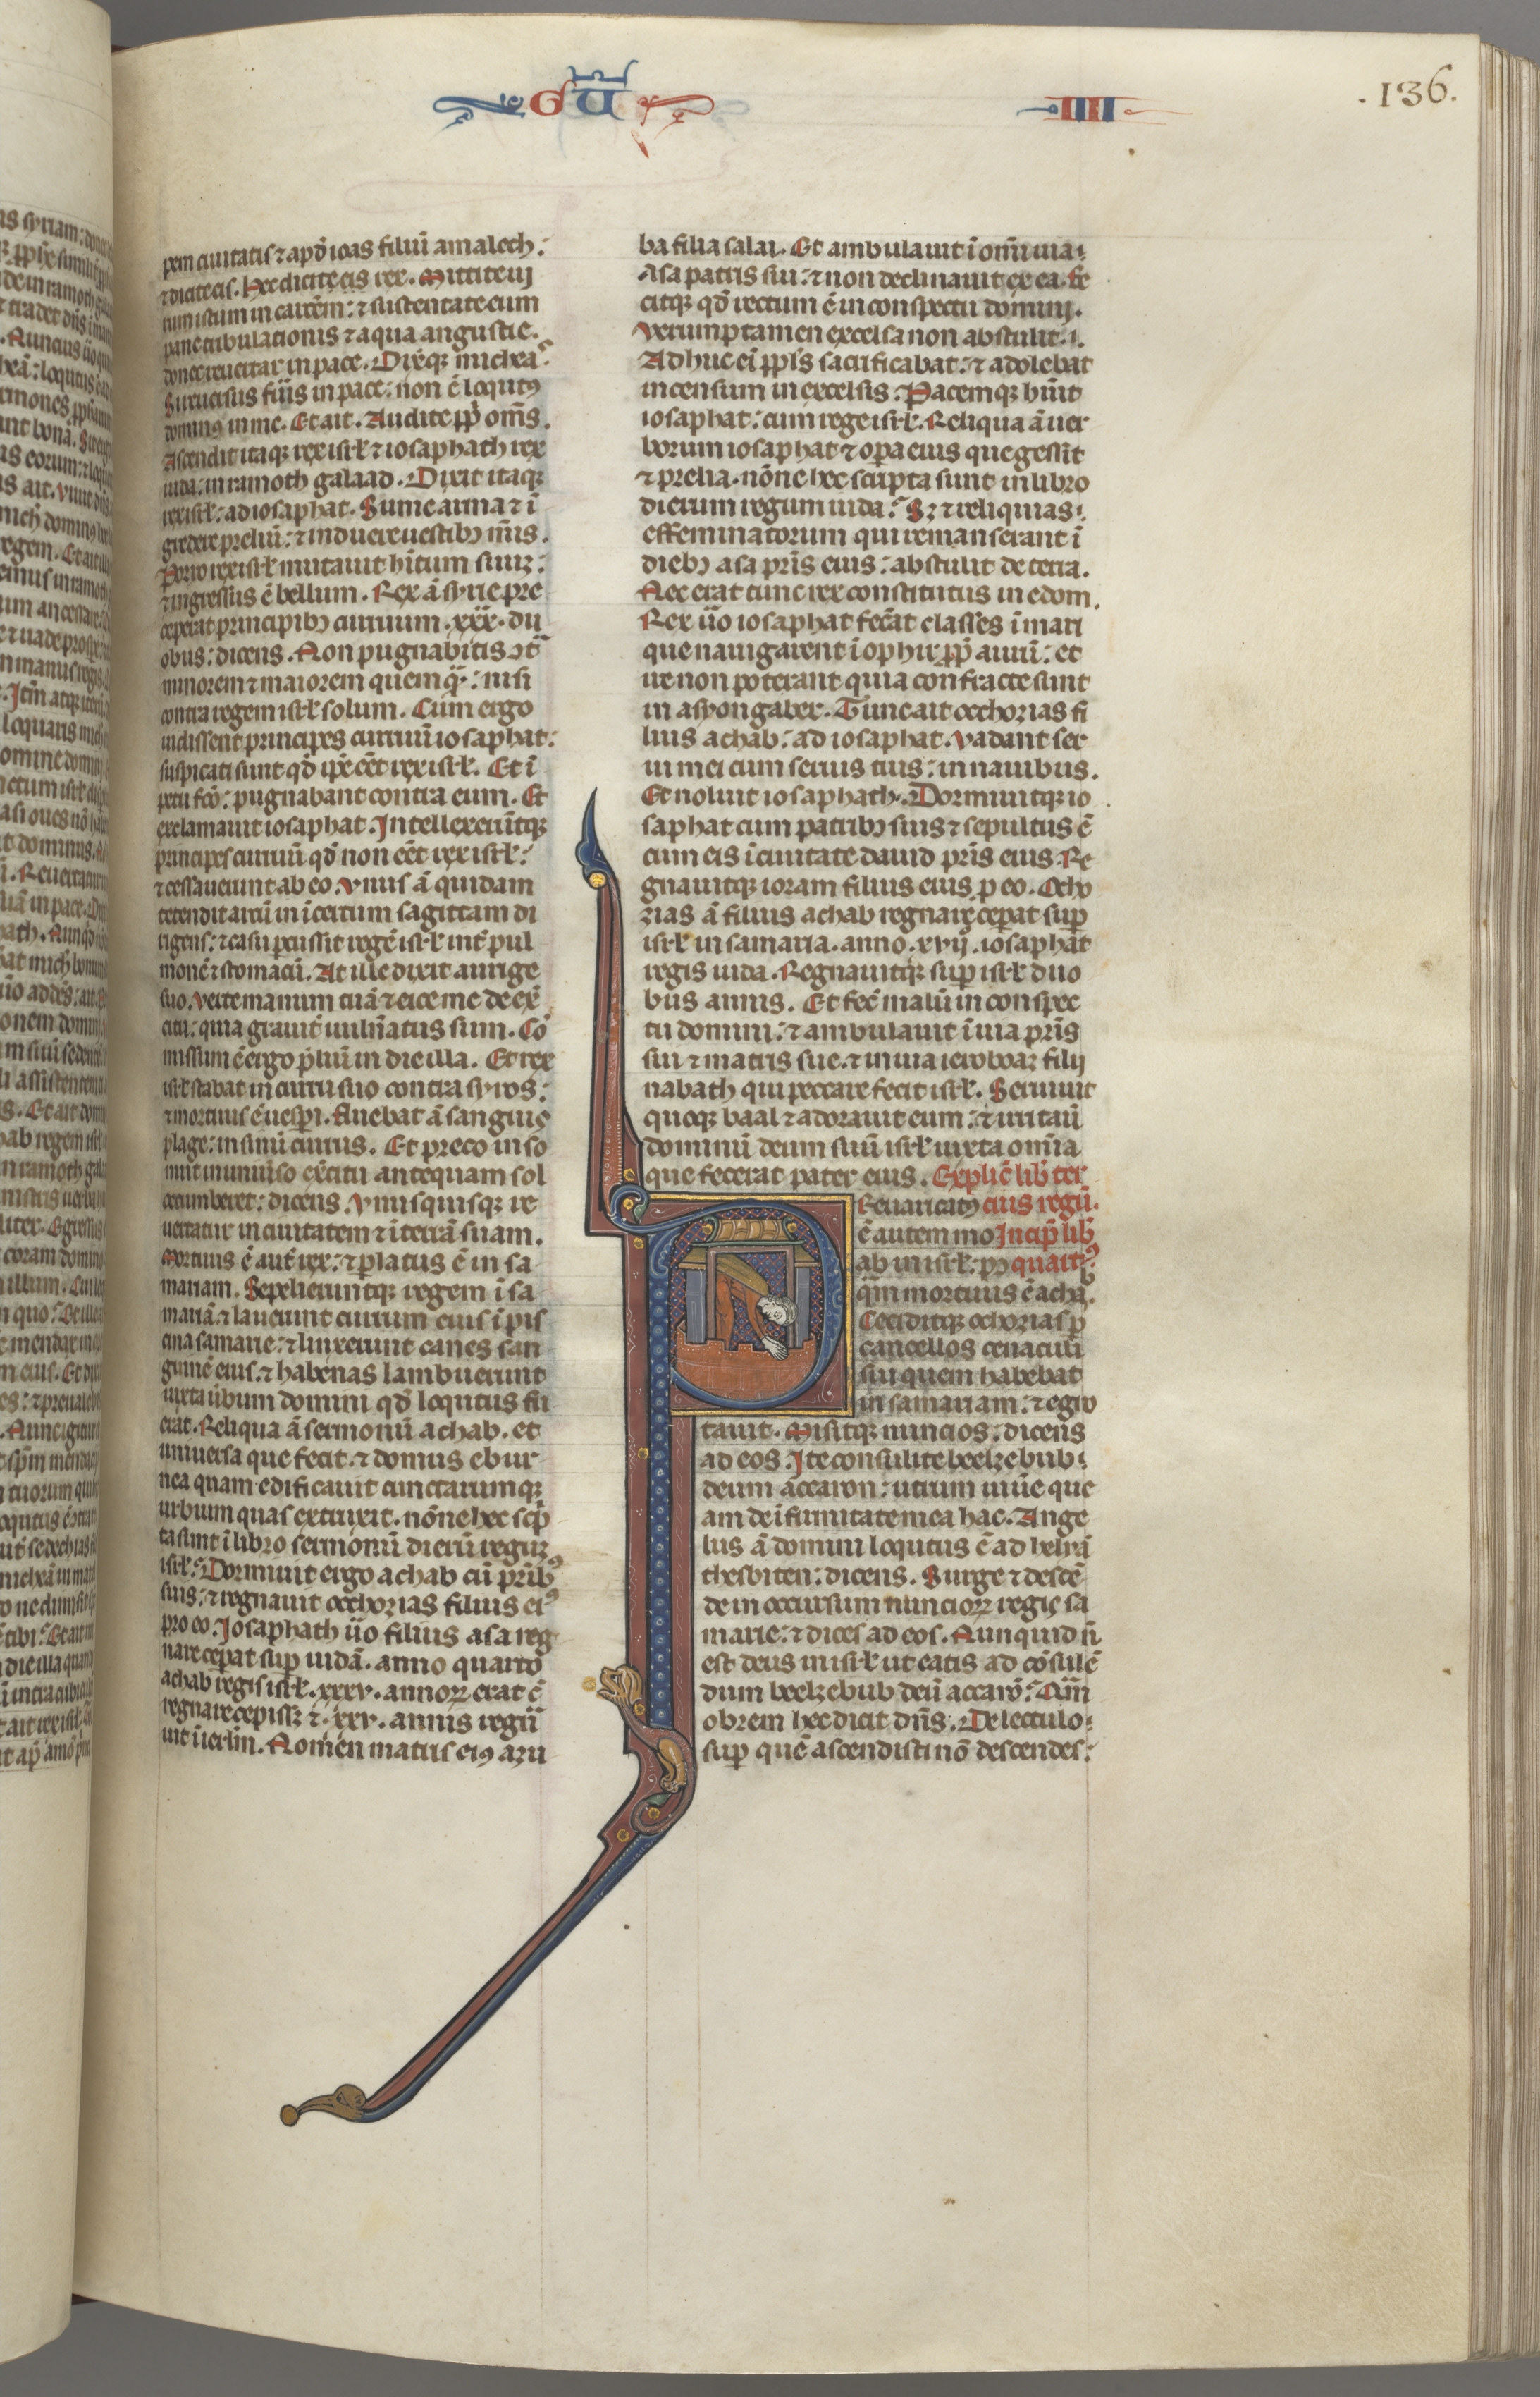 GŪ
IIII
.136.
pem ciuitatis ⁊ apđ ioas filiū amalech:
⁊ dicite eis. Hec dicit eis rex. Mittite ui
rum istum in carcēm: ⁊ sustentate eum
pane tribulationis ⁊ aqua angustie.
donec reuertar in pace. Dixitqʒ michea.
Si reuersus fūis in pace: non ē locutꝰ
dominꝰ in me. Et ait. Audite ppłi om̄s.
Ascendit itaqʒ rex isrł ⁊ iosaphath rex
iuda: in ramoth galaad. Dixit itaqʒ
rex isrł: ad iosaphat. Sume arma ⁊ ī
gredere preliū: ⁊ induere uestibꝫ tuis.
Porro rex isrł mutauit hītum suūʒ:
⁊ ingressus ē bellum. Rex ā syrie pre
ceperat principibꝫ curruum .xxx. du
obus: dicens. Non pugnabitis ɔt̄
minorem ⁊ maiorem quemqͣ: nisi
contra regem isrł solum. Cum ergo
uidissent principes curruū iosaphat:
suspicati sunt qđ ip̄e eēt rex isrł. Et ī
petu fc̄o: pugnabant contra eum. Et
exclamauit iosaphat. Intellexerūtqʒ
principes curruū qđ non eēt rex isrł:
⁊ cessauerunt ab eo. Vnus ā quidam
tetendit arcū in īcertum sagittam di
rigens: ⁊ casu percussit regē isrł int̄ pul
monē ⁊ stomacū. At ille dixit aurige
suo. Verte manum tuā ⁊ eice me de ex̄
citu: quia grauit̄ uuln̄atus sum. Cō
missum ē ergo p̄liū in die illa. Et rex
isrł stabat in curru suo contra syros:
⁊ mortuus ē uesp̄i. fluebat ā sanguis
plage: in sinū currus. Et preco inso
nuit in uniu̓so ex̄citu antequam sol
occumberet: dicens. Vnusquisqʒ re
uertatur in ciuitatem ⁊ ī terrā suam.
Mortuus ē aut̄ rex: ⁊ p̄latus ē in sa
mariam. Sepelieruntqʒ regem ī sa
mariā. ⁊ lauerunt currum eius ī pis
cina samarie: ⁊ linxerunt canes san
guinē eius. ⁊ habenas lambuerunt
iuxta ūbum domini qđ loqutus fu
erat. Reliqua ā sermonū achab. et
uniuersa que fecit. ⁊ domus ebur
nea quam edificauit cunctarumqʒ
urbium quas extruxit. nōne hec sc̄p
ta sunt ī libro sermonū dierū regum
isrł: Dormiuit ergo achab cū pr̄ibꝫ
suis: ⁊ regnauit occhozias filius eiꝰ
pro eo. Iosaphath ūo filius asa reg
nare cep̄at sup̄ iudā. anno quarto
achab regis isrł. xxxv. annoꝝ erat c̄
regnare cepisset ⁊ .xxv. annis regn̄
uit ī ierłm. Nomen matris eiꝰ azu
ba filia salai. Et ambulauit ī om̄i uia:
Asa patris sui: ⁊ non declinauit ex ea. fe
citqʒ qđ rectum ē in conspectu domini.
Verumptamen excelsa non abstulit:
Adhuc eī ppłs sacrificabat: ⁊ adolebat
incensum in excelsis. Pacemqʒ hūit
iosaphat: cum rege isrł. Reliqua ā uer
borum iosaphat ⁊ opa eius que gessit
⁊ prelia. nōne hec scripta sunt in libro
dierum regum iuda: Sʒ ⁊ reliquias:
effeminatorum qui remanserant ī
diebꝫ asa pr̄is eius: abstulit de terra.
Nec erat tunc rex constitutus in edom.
Rex ūo iosaphat fec̄at classes ī mari
que nauigarent ī ophir pp̄ aurū: et
ire non poterant quia confracte sunt
in asyongaber. Tunc ait occhozias fi
lius achab: ad iosaphat. Vadant ser
ui mei cum seruis tuis: in nauibus.
Et noluit iosaphath. Dormiuitqʒ io
saphat cum patribꝫ suis ⁊ sepultus ē
cum eis ī ciuitate dauid pr̄is eius. Re
gnauitqʒ ioram filius eius p̄ eo. Ocho
zias ā filius achab regnare cep̄at sup̄
isrł in samaria. anno .xvij. iosaphat
regis iuda. Regnauitqʒ sup̄ isrł duo
bus annis. Et fec̄ malū in conspec
tu domini: ⁊ ambulauit ī uia pr̄is
sui ⁊ matris sue. ⁊ in uia ieroboaʒ filij
nabath qui peccare fecit isrł. Seruiuit
quoqʒ baal ⁊ adorauit eum: ⁊ irritau̓
dominū deum suū isrł iuxta om̄ia
que fecerat pater eius. Explic̄ lib̄ ter
Reuaricatꝰ cius regū.
ē autem mo Incip̄ lib̄
ab in isrł: pꝰ quartꝰ
q̄m mortuus ē achaᵇ.
Ceciditqʒ ochozias p̄
cancellos cenaculi
sui quem habebat
in samariam: ⁊ egro
tauit. Misitqʒ nuncios: dicens
ad eos. Ite consulite beelzebub:
deum accaron: utrum uiuē que
am de īfirmitate mea hac. Ange
lus ā domini loqutus ē ad heliā
thesbiten: dicens. Surge ⁊ descē
de in occursum nuncioꝝ regis sa
marie: ⁊ dices ad eos. Nunquid n̄
est deus in isrł ut eatis ad cōsulē
dum beelzebub deū accarō: Qām
obrem hec dicit dn̄s. De lectulo:
sup̄ quē ascendisti nō descendes: